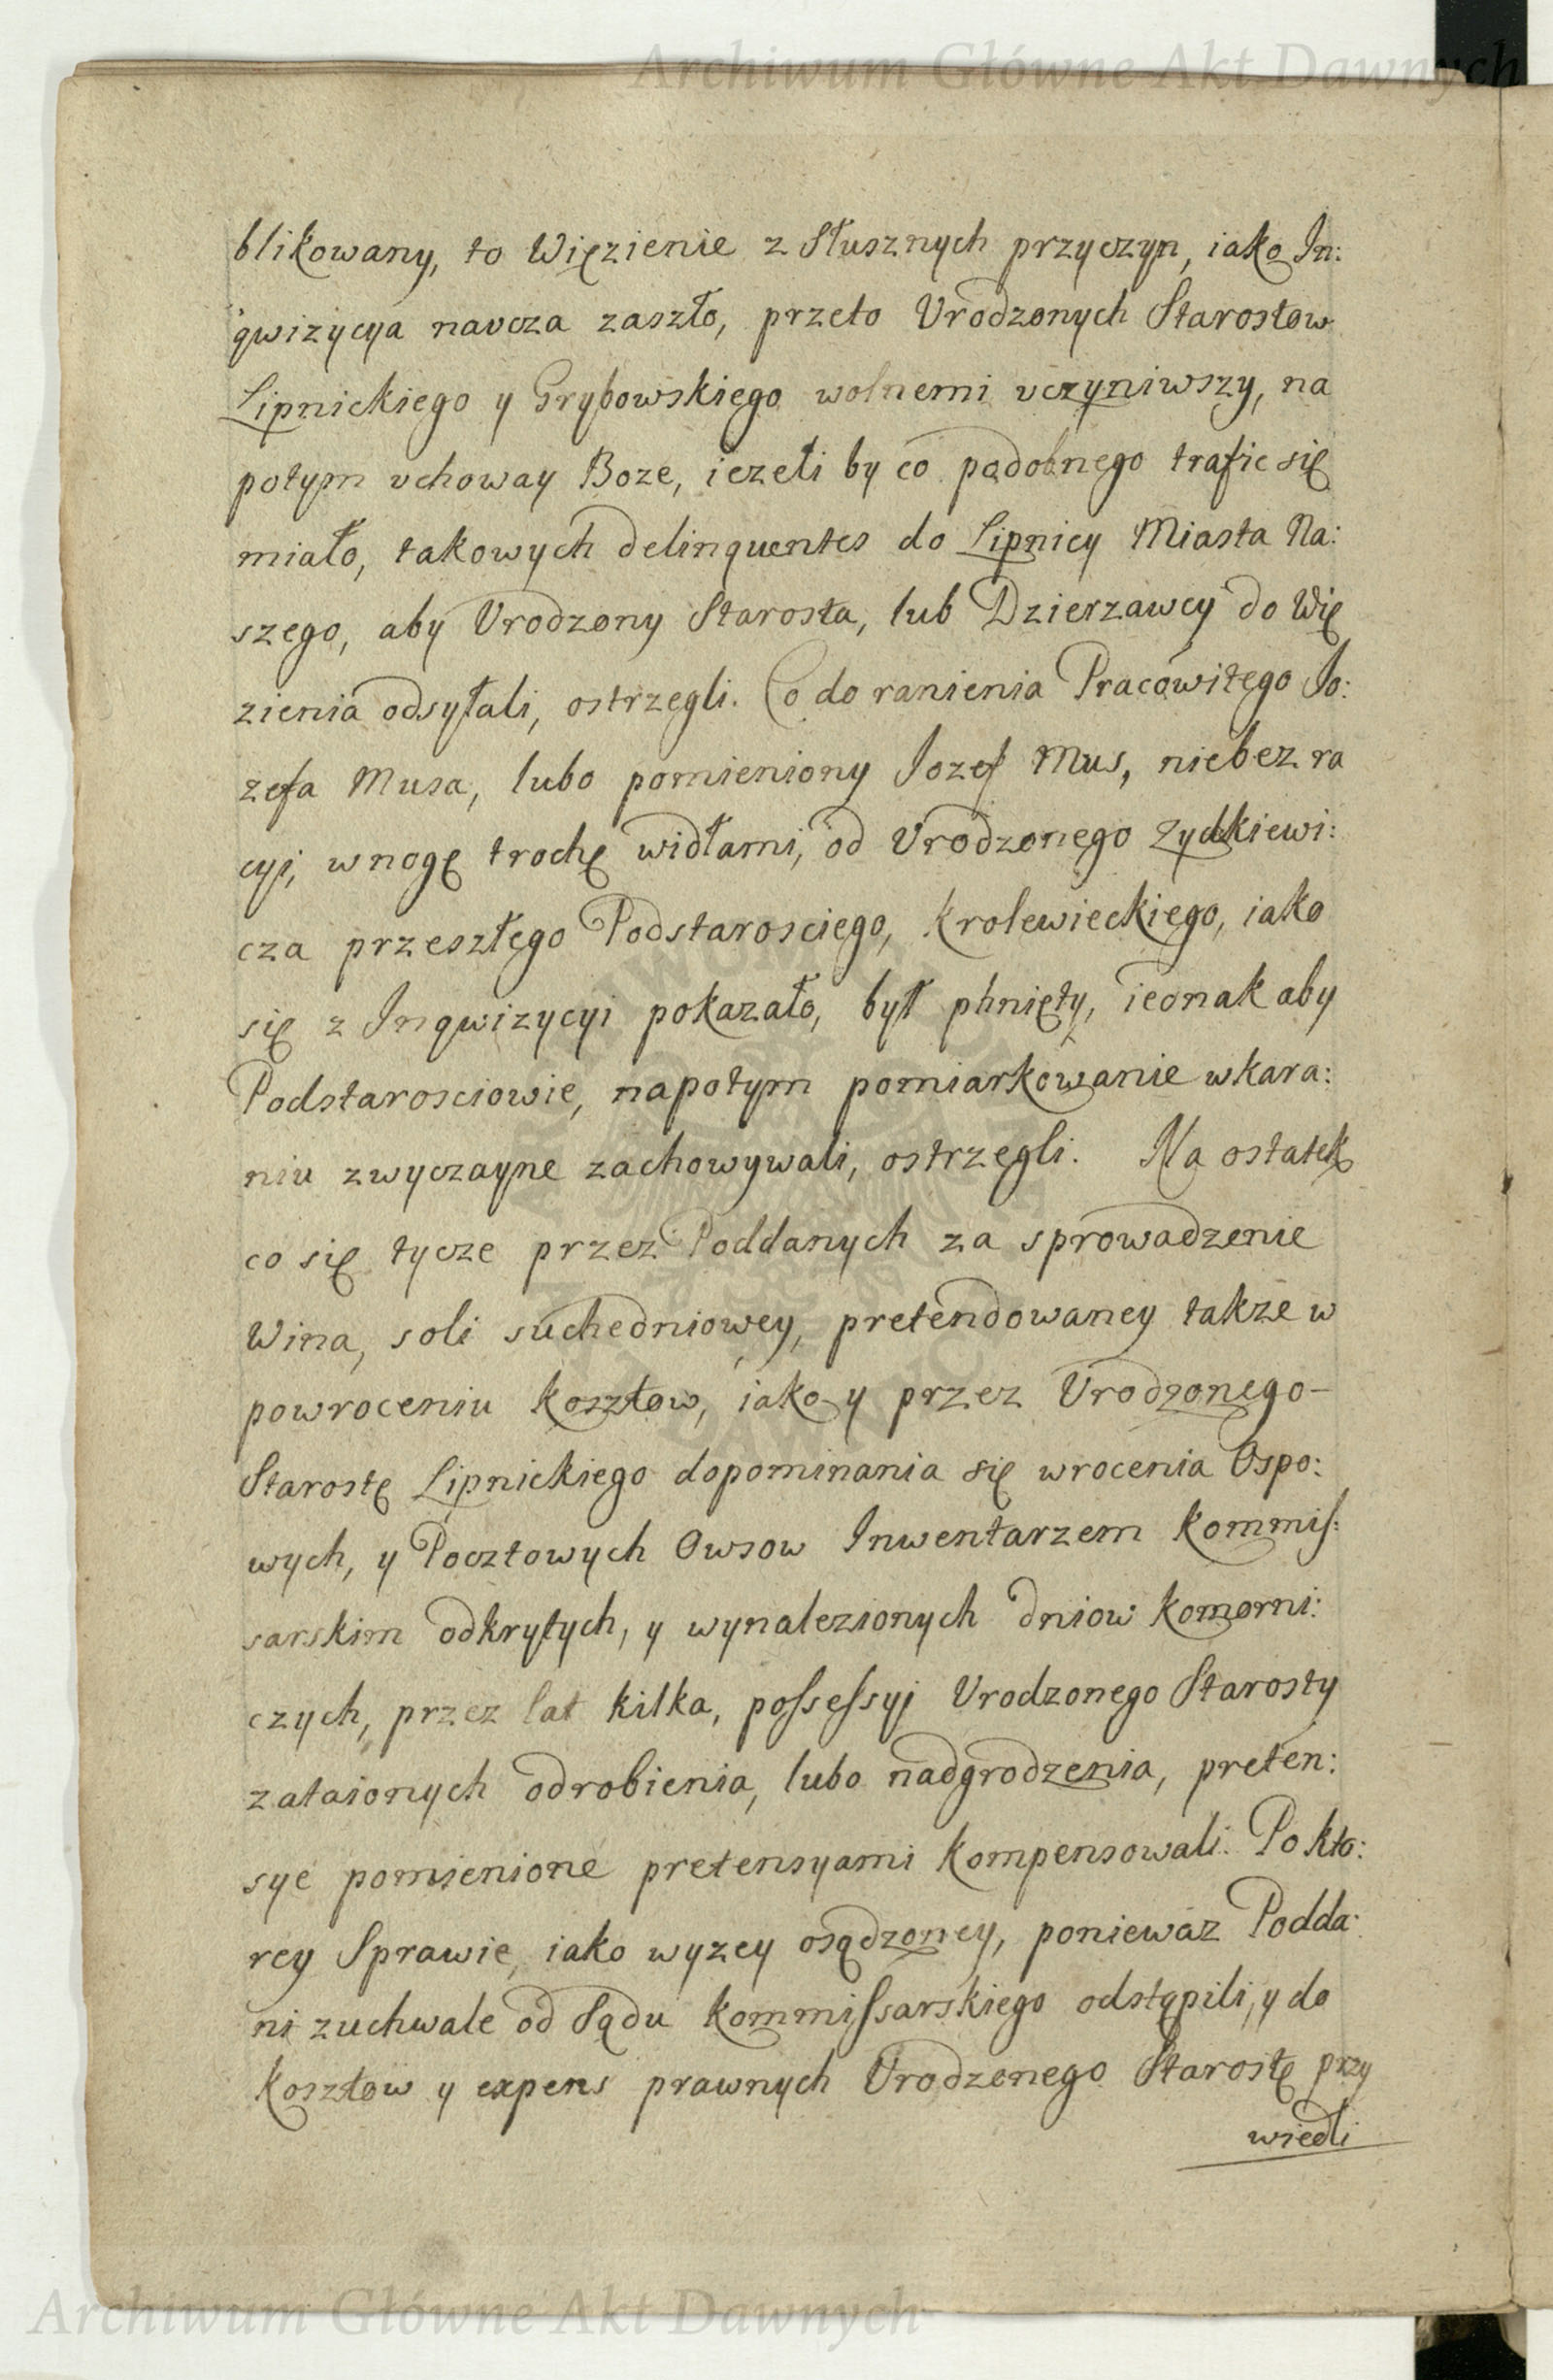 Archiwum Główne Akt Dawnych
blikowany, to Więzienie z Słusznych przyczyn, iako In:
qwizycya naucza zaszło, przeto Urodzonych Starostow
Lipnickiego y Grybowskiego wolnemi uczyniwszy, na
potym uchoway Boze, iezeli by co podobnego trafic się
miało, takowych delinquentes do Lipnicy Miasta Na:
szego, aby Urodzony Starosta, lub Dzierzawcy do Wię
zienia odsyłali, ostrzegli. Co do ranienia Pracowitego Jo:
zefa Musa, lubo pomieniony Jozef Mus, niebez ra
cyi, w nogę trochę widłami, od Urodzonego Zydkiewi:
cza przeszłego Podstarosciego, Krolewieckiego, iako
się z Inqwizycyi pokazało, był phnięty, iednak aby
Podstarosciowie, napotym pomiarkowanie w kara:
niu zwyczayne zachowywali, ostrzegli. Na ostatek
co się tycze przez Poddanych za sprowadzenie
Wina, soli suchedniowey, pretendowaney takze w
powroceniu Kosztow, iako y przez Urodzonego-
Starostę Lipnickiego dopominania się wrocenia Ospo:
wych, y Pocztowych Owsow Inwentarzem Kommis:
sarskim odkrytych, y wynalezionych dniow Komorni:
czych, przez lat kilka, possessyi Urodzonego Starosty
zataionych odrobienia, lubo nadgrodzenia, preten:
sye pomienione pretensyami Kompensowali. Po kto:
rey Sprawie, iako wyzey osądzoney, poniewaz Podda:
ni zuchwale od Sądu Kommissarskiego odstąpili, y do
Kosztow y expens prawnych Urodzonego Starostę przy
wiedli
Archiwum Główne Akt Dawnych